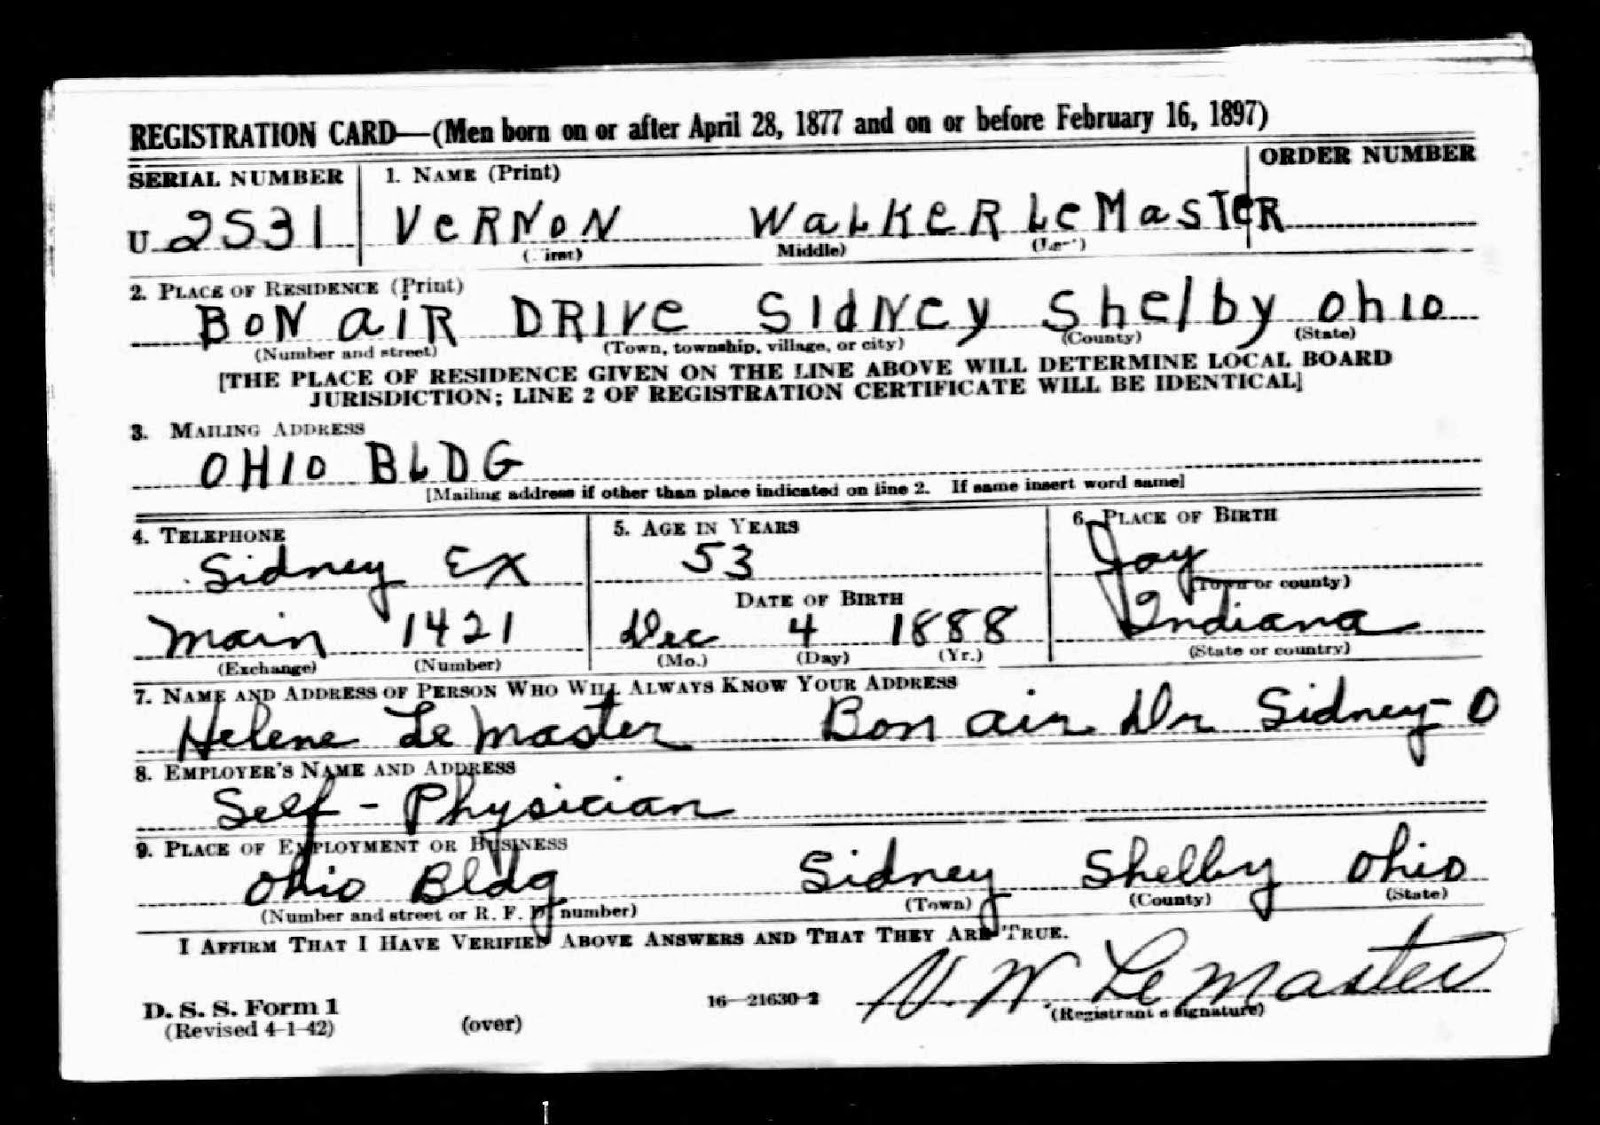 REGISTRATION CARD—(Men born on or after April 28, 1877 and on or before February 16, 1897)
SERIAL NUMBER 1. NAME (Print) ORDER NUMBER
U 2531 VERNON WALKER LEMASTER
(First) (Middle) (Last)
2. PLACE OF RESIDENCE (Print)
BON AIR DRIVE SIDNEY Shelby Ohio
(Number and street) (Town, township, village, or city) (County) (State)
[THE PLACE OF RESIDENCE GIVEN ON THE LINE ABOVE WILL DETERMINE LOCAL BOARD
JURISDICTION; LINE 2 OF REGISTRATION CERTIFICATE WILL BE IDENTICAL]
3. MAILING ADDRESS
OHIO BLDG
[Mailing address if other than place indicated on line 2. If same insert word same]
4. TELEPHONE 5. AGE IN YEARS 6. PLACE OF BIRTH
Sidney Ex 53 Jay
(Town or county)
DATE OF BIRTH
Main 1421 Dec 4 1888 Indiana
(Exchange) (Number) (Mo.) (Day) (Yr.) (State or country)
7. NAME AND ADDRESS OF PERSON WHO WILL ALWAYS KNOW YOUR ADDRESS
Helene LeMaster Bon air Dr Sidney-O
8. EMPLOYER'S NAME AND ADDRESS
Self - Physician
9. PLACE OF EMPLOYMENT OR BUSINESS
Ohio Bldg Sidney Shelby Ohio
(Number and street or R. F. D. number) (Town) (County) (State)
I AFFIRM THAT I HAVE VERIFIED ABOVE ANSWERS AND THAT THEY ARE TRUE.
V. W. LeMaster
D. S. S. Form 1 16—21630-2 (Registrant's signature)
(Revised 4-1-42) (over)